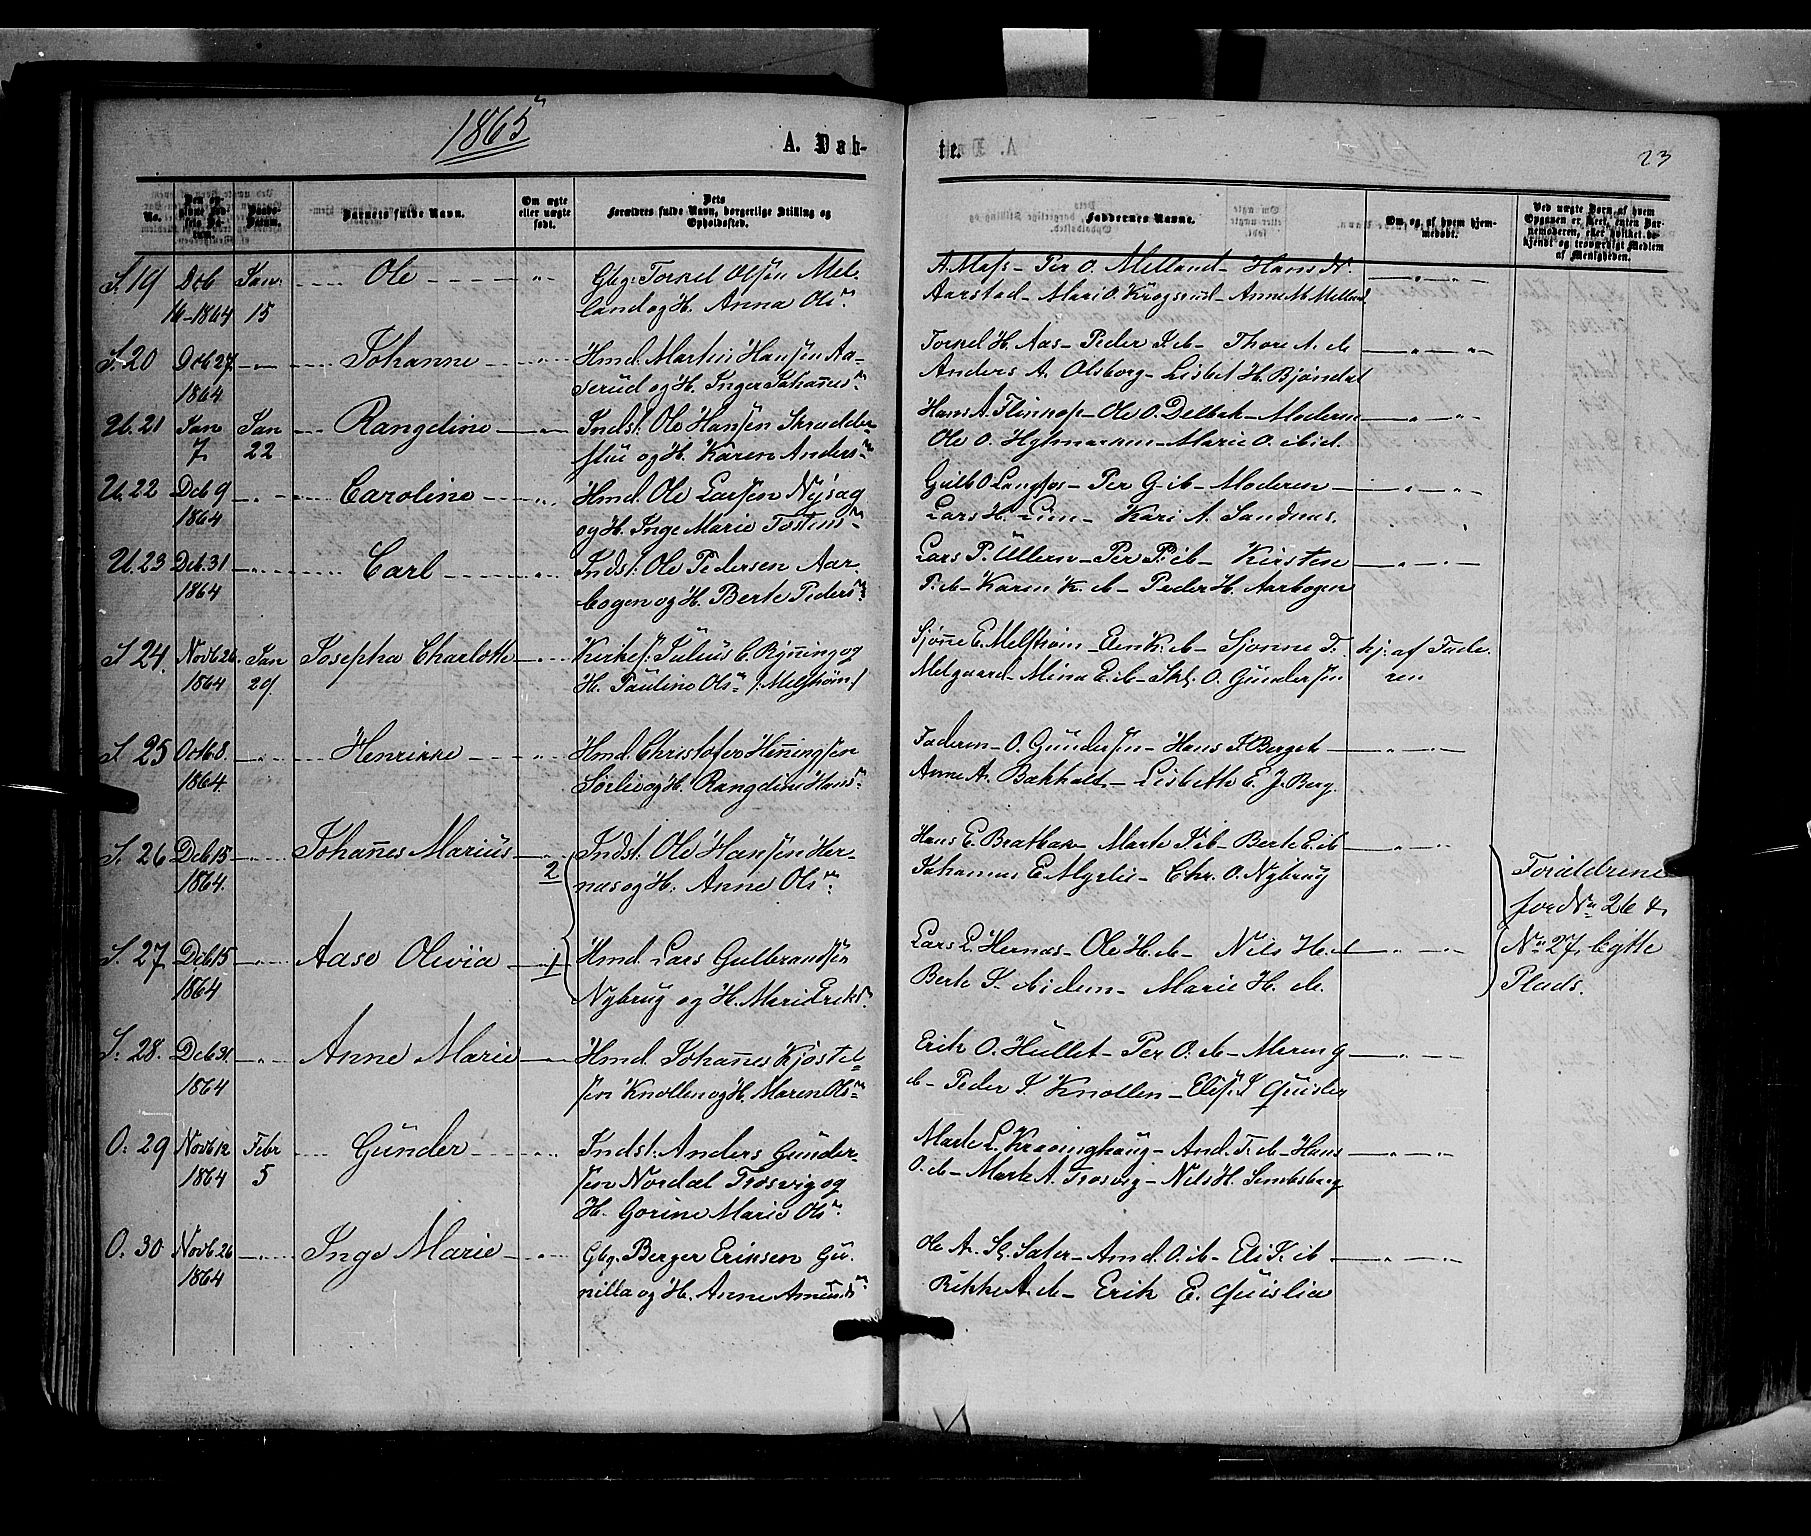 1865
A. Dab-
te.
23
No.
Barnets fulde Navn.
Om ægte eller uægte født.
Dets Forældres fulde Navn, borgerlige Stilling og Opholdssted.
Faddernes Navne.
Om, og af hvem hjemmedøbt.
Ved uægte Børn, af hvem Opgaven er skeet, enten Barnemoderen, eller hvilket bekjendt og troværdigt Medlem af Menigheden.
S. 19 Dcb 16-1864 Jan 15 Ole
Gbg: Torkel Olsen Mel-
land og H. Anna Ols
A. Mass- Per O. Melland- Hans N.
Aarstad- Mari O. Krogsrud- Anne M Melland
S. 20 Dcb 27. 1864 Johanne
Hmd. Martin Hansen Aa-
serud og H. Inger Johannes
Torkel H. Aas- Peder J. ib- Thore A. ib
Anders A. Olsborg- Lisbet H. Bjöndal
U. 21 Jan 7. Jan 22 Rangdine
Indst: Ole Hansen Skradder-
stu og H. Karen Anders
Hans A. - Ole O. Delbak- Moderen
Ole O. - Marie O. ibid.
U. 22 Dcb 9 1864 Caroline
Hmd. Ole Larsen Nysag
og H. Inge Marie Tostens
Gulb O Langsos- Per G. ib- Moderen
Lars H. Lun- Kari A. Sandnes.
U. 23 Dcb. 31 1864 Carl
Indst: Ole Pedersen Aar-
bogen og H. Berte Peders
Lars P. Ullern- Per P. ib- Kirsten
P. ib- Karen K. ib- Peder H. Aarbogen
S 24. Novb 26. 1864 Jan 29. Josepha Charlotte
Kirkes: Julius C. Rynning og
H. Pauline Ols /:Melström/
Sjönne E. Melström- Een K. ib- Sjonne T.
Melgaard- Mina E. ib- Skl. O. Gundersen
hj: af Fade-
ren
S 25 Octb 8. 1864 Henrikke
Hmd. Christofer Henningsen
Sörlie og H. Rangdine Hans
Faderen- O. Gundersen- Hans J Berget
Anne A. Bakhalt- Lisbeth E. J. Berg.
S. 26 Dcb 15 1864. Johannes Marius 2
Indst: Ole Hansen Her-
nas og H. Anne Ols
Hans E. Bratbak- Marte J. ib- Berte E. ib
Johannes E Myrlie- Chr. O. Nybrug
Foraldrene
for No 26 &
No 27. bytte
Plads.
S. 27. Dcb 15 1864 Aase Olivia 1
Hmd. Lars Gulbrandsen
Nybrug og H. Mari Eriks
Lars L. Hernas- Ole H. ib- Nils H. ib
Berte S. ibidem- Marie H. ib
S. 28. Dcb 31. 1864 Anne Marie
Hmd. Johannes Kjostel-
sen Knollen og H. Maren Ols
Erik O. Hullet- Per O. ib- Maren G
ib- Peder J. Knollen- Elis. J Quislie
O. 29 Novb 12 1864 Febr 5 Gunder
Indst: Anders Gunder-
sen Nordal Trosvig og
H. Gorine Marie Ols
Marte L. Kroninghaug- And. T. ib- Hans
O. ib- Marte A. Trosvig- Nils H. Sundsberg
O. 30 Novb. 26 1864 Inge Marie
Gbg. Berger Eriksen Gu-
nilla og H. Anne Amunds
Ole A. Sl. Sater- Amd. O. ib- Eli K. ib
Rikke A. ib- Erik E. Quislie